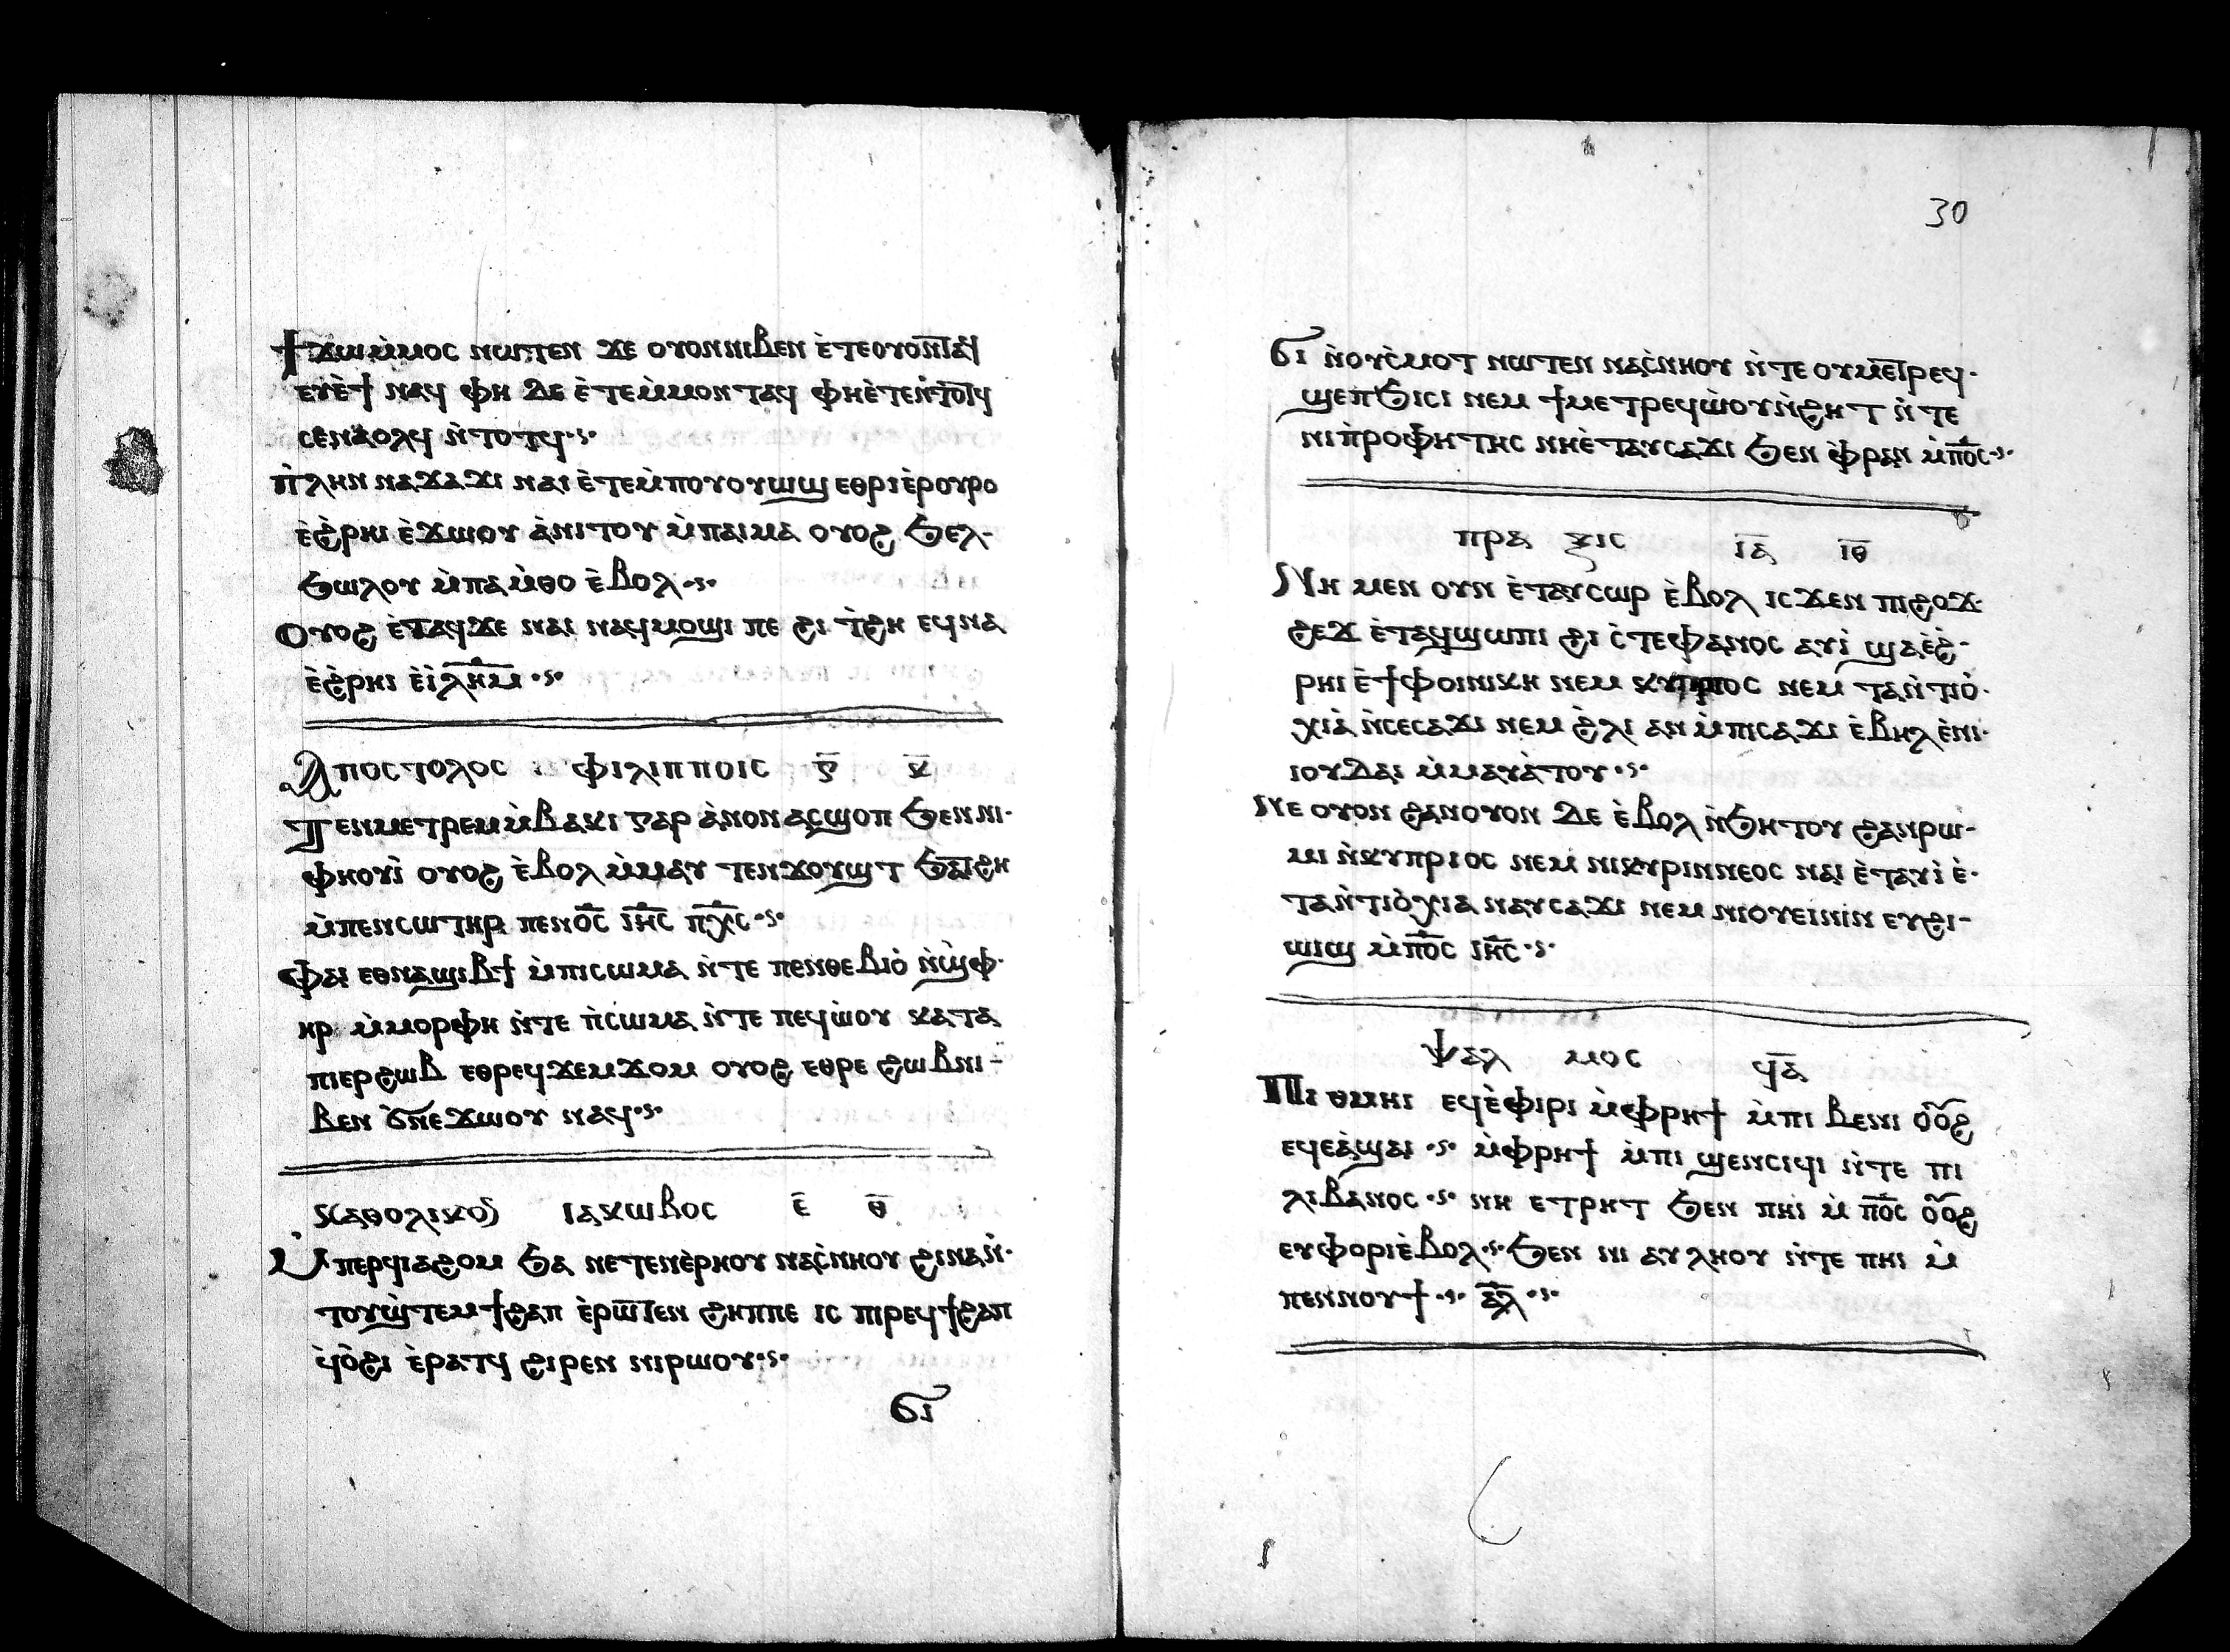 ϯϫⲱ ⲙ̀ⲙⲟⲥ ⲛⲱⲧⲉⲛ ϫⲉ ⲟⲩⲟⲛ ⲛⲓⲃⲉⲛ ⲉ̀ⲧⲉⲟⲩⲟⲛⲧⲁϥ
ⲉⲩⲉ̀ϯ ⲛⲁϥ ⲫⲏ ⲇⲉ ⲉ̀ⲧⲉⲙ̀ⲙⲟⲛⲧⲁϥ ⲫⲏⲉ̀ⲧⲉⲛⲧⲟⲧϥ
ⲥⲉⲛⲁⲟⲗϥ ⲛ̀ⲧⲟⲧϥ
ⲡ̀ⲗⲏⲛ ⲛⲁϫⲁϫⲓ ⲛⲁⲓ ⲉ̀ⲧⲉⲙ̀ⲡⲟⲩⲟⲩⲱϣ ⲉⲑⲣⲓⲉ̀ⲣⲟⲩⲣⲟ
ⲉ̀ϩ̀ⲣⲏⲓ ⲉ̀ϫⲱⲟⲩ ⲁ̀ⲛⲓⲧⲟⲩ ⲙ̀ⲡⲁⲓⲙⲁ ⲟⲩⲟϩ ϧⲉⲗ-
ϧⲱⲗⲟⲩ ⲙ̀ⲡⲁⲙ̀ⲑⲟ ⲉ̀ⲃⲟⲗ
Ⲟⲩⲟϩ ⲉ̀ⲧⲁϥϫⲉ ⲛⲁⲓ ⲛⲁϥⲙⲟϣⲓ ⲡⲉ ϩⲓ ⲧ̀ϩⲏ ⲉϥⲛⲁ
ⲉ̀ϩ̀ⲣⲏⲓ ⲉ̀ⲓ̀ⲗⲏⲙ
Ⲁⲡⲟⲥⲧⲟⲗⲟⲥ ⲫⲓⲗⲓⲡⲡⲟⲓⲥ ⲅ̅ ⲕ̅
Ⲡⲉⲛⲙⲉⲧⲣⲉⲙⲙ̀ⲃⲁⲕⲓ ⲅⲁⲣ ⲁ̀ⲛⲟⲛ ⲁⲥϣⲟⲡ ϧⲉⲛ ⲛⲓ-
ⲫⲏⲟⲩⲓ̀ ⲟⲩⲟϩ ⲉ̀ⲃⲟⲗ ⲙ̀ⲙⲁⲩ ⲧⲉⲛϫⲟⲩϣⲧ ϧⲁⲧϩⲏ
ⲙ̀ⲡⲉⲛⲥⲱⲧⲏⲣ ⲡⲉⲛⲟ̅ⲥ̅ ⲓ̅ⲏ̅ⲥ̅ ⲡ̅ⲭ̅ⲥ̅
Ⲫⲁⲓ ⲉⲑⲛⲁϣⲓⲃϯ ⲙ̀ⲡⲓⲥⲱⲙⲁ ⲛ̀ⲧⲉ ⲡⲉⲛⲑⲉⲃⲓⲟ̀ ⲛ̀ϣ̀ⲫ-
ⲏⲣ ⲙ̀ⲙⲟⲣⲫⲏ ⲛ̀ⲧⲉ ⲡ̀ⲥⲱⲙⲁ ⲛ̀ⲧⲉ ⲡⲉϥⲱ̀ⲟⲩ ⲕⲁⲧⲁ
ⲡⲓⲉⲣϩⲱⲃ ⲉⲑⲣⲉϥϫⲉⲙϫⲟⲙ ⲟⲩⲟϩ ⲉⲑⲣⲉ ϩⲱⲃ ⲛⲓ-
ⲃⲉⲛ ϭ̀ⲛⲉϫⲱⲟⲩ ⲛⲁϥ
Ⲕⲁⲑⲟⲗⲓⲕⲟⲛ ⲓⲁⲕⲱⲃⲟⲥ ⲉ̅ ⲑ̅
Ⲙ̀ⲡⲉⲣϥⲓⲁϩⲟⲙ ϧⲁ ⲛⲉⲧⲉⲛⲉ̀ⲣⲏⲟⲩ ⲛⲁⲥ̀ⲛⲏⲟⲩ ϩⲓⲛⲁ ⲛ̀-
ⲧⲟⲩϣ̀ⲧⲉⲙϯϩⲁⲡ ⲉ̀ⲣⲱⲧⲉⲛ ϩⲏⲡⲡⲉ ⲓⲥ ⲡⲓⲣⲉϥϯϩⲁⲡ
ϥ̀ⲟ̀ϩⲓ ⲉ̀ⲣⲁⲧϥ ϩⲓⲣⲉⲛ ⲛⲓⲣⲱⲟⲩ
ϭⲓ
30
ϭⲓ ⲛ̀ⲟⲩⲥ̀ⲙⲟⲧ ⲛⲱⲧⲉⲛ ⲛⲁⲥ̀ⲛⲏⲟⲩ ⲛ̀ⲧⲉ ⲟⲩⲙⲉⲧⲣⲉϥ-
ϣⲉⲡϧⲓⲥⲓ ⲛⲉⲙ ϯⲙⲉⲧⲣⲉϥⲱ̀ⲟⲩⲛ̀ϩⲏⲧ ⲛ̀ⲧⲉ
ⲛⲓⲡ̀ⲣⲟⲫⲏⲧⲏⲥ ⲛⲏⲉ̀ⲧⲁⲩⲥⲁϫⲓ ϧⲉⲛ ⲫ̀ⲣⲁⲛ ⲙ̀ⲡ̅ⲟ̅ⲥ̅
ⲡⲣⲁ ⲝⲓⲥ ⲓ̅ⲁ̅ ⲓ̅ⲑ̅
Ⲛⲏ ⲙⲉⲛ ⲟⲩⲛ ⲉ̀ⲧⲁⲩⲥⲱⲣ ⲉ̀ⲃⲟⲗ ⲓⲥϫⲉⲛ ⲡⲓϩⲟϫ-
ϩⲉϫ ⲉ̀ⲧⲁϥϣⲱⲡⲓ ϩⲓ ⲥ̀ⲧⲉⲫⲁⲛⲟⲥ ⲁⲩⲓ̀ ϣⲁⲉ̀ϩ̀-
ⲣⲏⲓ ⲉ̀ϯⲫⲟⲓⲛⲓⲕⲏ ⲛⲉⲙ ⲕⲩⲡⲣⲟⲥ ⲛⲉⲙ ⲧⲁⲛ̀ⲧⲓⲟ̀-
ⲭⲓⲁ̀ ⲛ̀ⲥⲉⲥⲁϫⲓ ⲛⲉⲙ ϩ̀ⲗⲓ ⲁⲛ ⲙ̀ⲡⲓⲥⲁϫⲓ ⲉ̀ⲃⲏⲗ ⲉ̀ⲛⲓ-
ⲓⲟⲩⲇⲁⲓ ⲙ̀ⲙⲁⲩⲁ̀ⲧⲟⲩ
Ⲛⲉ ⲟⲩⲟⲛ ϩⲁⲛⲟⲩⲟⲛ ⲇⲉ ⲉ̀ⲃⲟⲗ ⲛ̀ϧⲏⲧⲟⲩ ϩⲁⲛⲣⲱ-
ⲙⲓ ⲛ̀ⲕⲩⲡⲣⲓⲟⲥ ⲛⲉⲙ ⲛⲓⲕⲩⲣⲓⲛⲛⲉⲟⲥ ⲛⲁⲓ ⲉ̀ⲧⲁⲩⲓ̀ ⲉ̀-
ⲧⲁⲛ̀ⲧⲓⲟ̀ⲭⲓⲁ ⲛⲁⲩⲥⲁϫⲓ ⲛⲉⲙ ⲛⲓⲟⲩⲉⲓⲛⲓⲛ ⲉⲩϩⲓ-
ϣⲓϣ ⲙ̀ⲡ̅ⲟ̅ⲥ̅ ⲓ̅ⲏ̅ⲥ̅
Ⲯⲁⲗ ⲙⲟⲥ ϥ̅ⲁ̅
Ⲡⲓ ⲑⲙⲏⲓ ⲉϥⲉ̀ⲫⲓⲣⲓ ⲙ̀ⲫⲣⲏϯ ⲙ̀ⲡⲓ ⲃⲉⲛⲓ ⲟⲟϩ
ⲉϥⲉⲁ̀ϣⲁⲓ ⲙ̀ⲫⲣⲏϯ ⲙ̀ⲡⲓ ϣⲉⲛⲥⲓϥⲓ ⲛ̀ⲧⲉ ⲡⲓ
ⲗⲓⲃⲁⲛⲟⲥ ⲛⲏ ⲉⲧⲣⲏⲧ ϧⲉⲛ ⲡⲏⲓ ⲙ̀ ⲡ̅ⲟ̅ⲥ̅ ⲟⲟϩ
ⲉⲩⲫⲟⲣⲓⲉ̀ⲃⲟⲗ ϧⲉⲛ ⲛⲓ ⲁⲩⲗⲏⲟⲩ ⲛ̀ⲧⲉ ⲡⲏⲓ ⲙ̀
ⲡⲉⲛⲛⲟⲩϯ ⲁ̅ⲗ̅